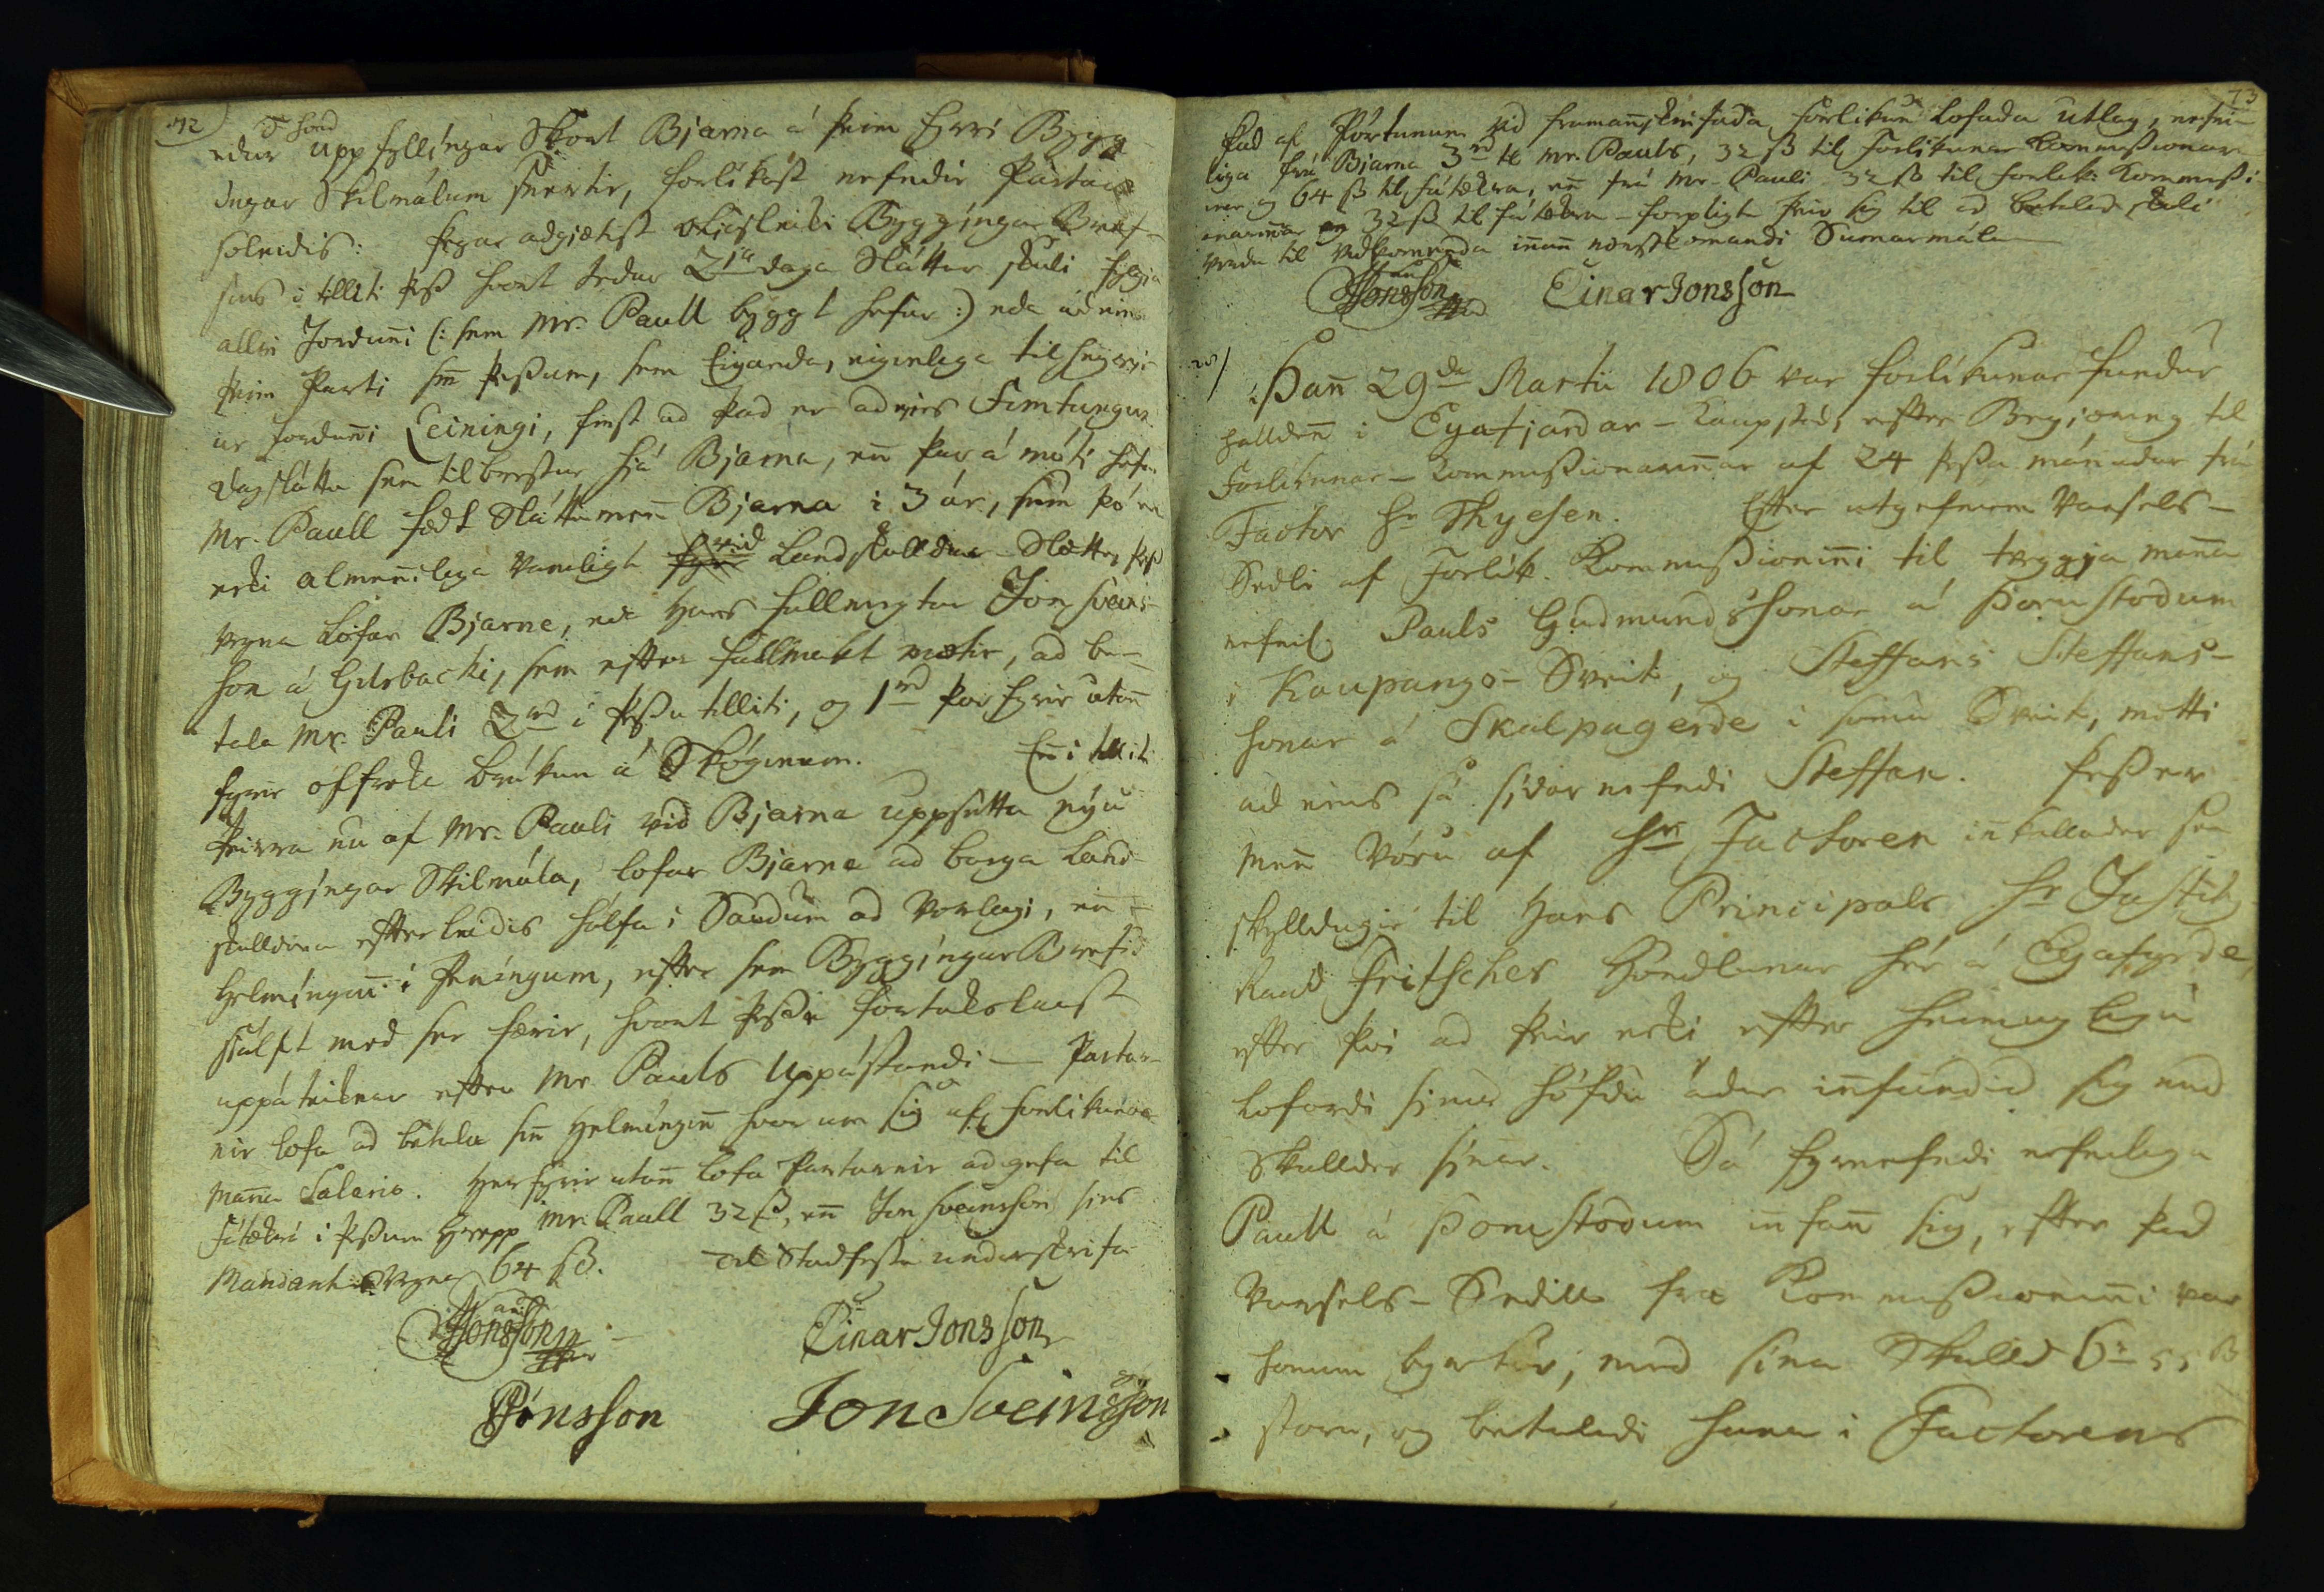 72
edur uppfyllingar Skort Bjarna á þeim fyrri Bygg
ingar Skilmálum snertir, forlíkast nefndir Partar
soleidis: þegar adgjætist Byggingar Bref-
sins i tilliti þess hvort tedur 2ja daga Sláttur skuli fylgja
allri Jordunni (: sem Mr. Paull byggt hefur :) eda adeins
þeim Parti sem þessum, sem Eiganda, eiginlega tilheyrir
úr Jordunni Leiningi, finst ad þad er adeins Fimtungur
dagslátta sem tilberstur hjá Bjarna, enn þar á móti hefur
Mr. Paull fædt Sláttumenn Bjarna i 3 ár, sem þó er
ecki almennilega vanaligt vid Landskulldar-Slætti, þess
vegna lofar Bjarne, eda Hans fullmegtur Jon Sveins-
son á Gilsbacki, sem eftter fullmakt mætir, ad be-
tala Mr. Pauli 2rd i þessu tilliti, og 1rd þar fyrir utan
fyrir offreka brúkun á Skóginum. Enn i tilliti
þeirra nú af Mr. Pauli vid Bjarna uppsettu nýu
Byggingar Skilmála, lofar Bjarne ad borga Land-
skulldina eftterleidis hálfa i Saudum ad Vorlagi, enn
Helminginn i Peningum, eftter sem Byggingar Brefid
sjálft med ser færir, hvort þessir fortakslaust
uppáteiknar eftter Mr. Pauls Uppástandi — Partar-
nir lofa ad betala sinn Helminginn hvor um sig af forlikunar
manna Salario. Her fyrir utan lofa Partarnir ad gefa til
fátækra i þessum Hrepp Mr. Paull 32 ß, enn Jon Sveinsson sins
Mandants Vegna 64 ß. Til Stadfestu underskrifa
Jonsson Einar Jonsson
PJónsson Jon Sveinsson
73
Þad af Pörtunum vid framannskrifada forlikun lofada utlag, nefni-
liga frá Bjarna 3rd til Mr. Pauls, 32 ß til Forlikunar Kommissionar-
innar og 64 ß til fátækra, enn frá Mr. Pauli 32 ß til forlik: Kommissi-
onarinnar og 32 ß til fátækra - forpligta þeir sig til ad betalad skuli
verda til Vedkomenda innan næstkomandi Sumarmála
Jonsson Einar Jonsson
Þann 29da Martii 1806 var forlikunar fundur
halldenn i Eyafjardar-Kaupstad, eftter Begjæring til
Forlikunar-Kommissionarinnar af 24 þessa mánadar frá
Factor Hr Thyesen. Eftter utgefnum Varsels-
Sedli af Forlik. Kommissioninni til tveggja manna
nefnil: Pauls Gudmundssonar á Þorustodum
i Kaupangs-Sveit, og Steffans Steffans-
sonar á Skalpagerde i sømu Sveit, mætti
ad eins sá sidarnefndi Steffan. Þesser
menn vóru af Hr Factoren innkalladir sem
skylldugir til Hans Principals Hr Justits
Raad Fritsches Høndlunar hér á Eyafyrde,
eftter þvi ad þeir ecki eftter heimugligu
loforde sinu höfdu ádur innfundid sig med
Skullder sinar. Sá fyrrnefndi nefnilega
Paull á Þorustodum innfann sig, eftter þad
Varsels-Sedill fra Kommissioninni var
honum byrtur, med sina Skulld 6rd 55 ß
stora, og betaladi hana i Factorens